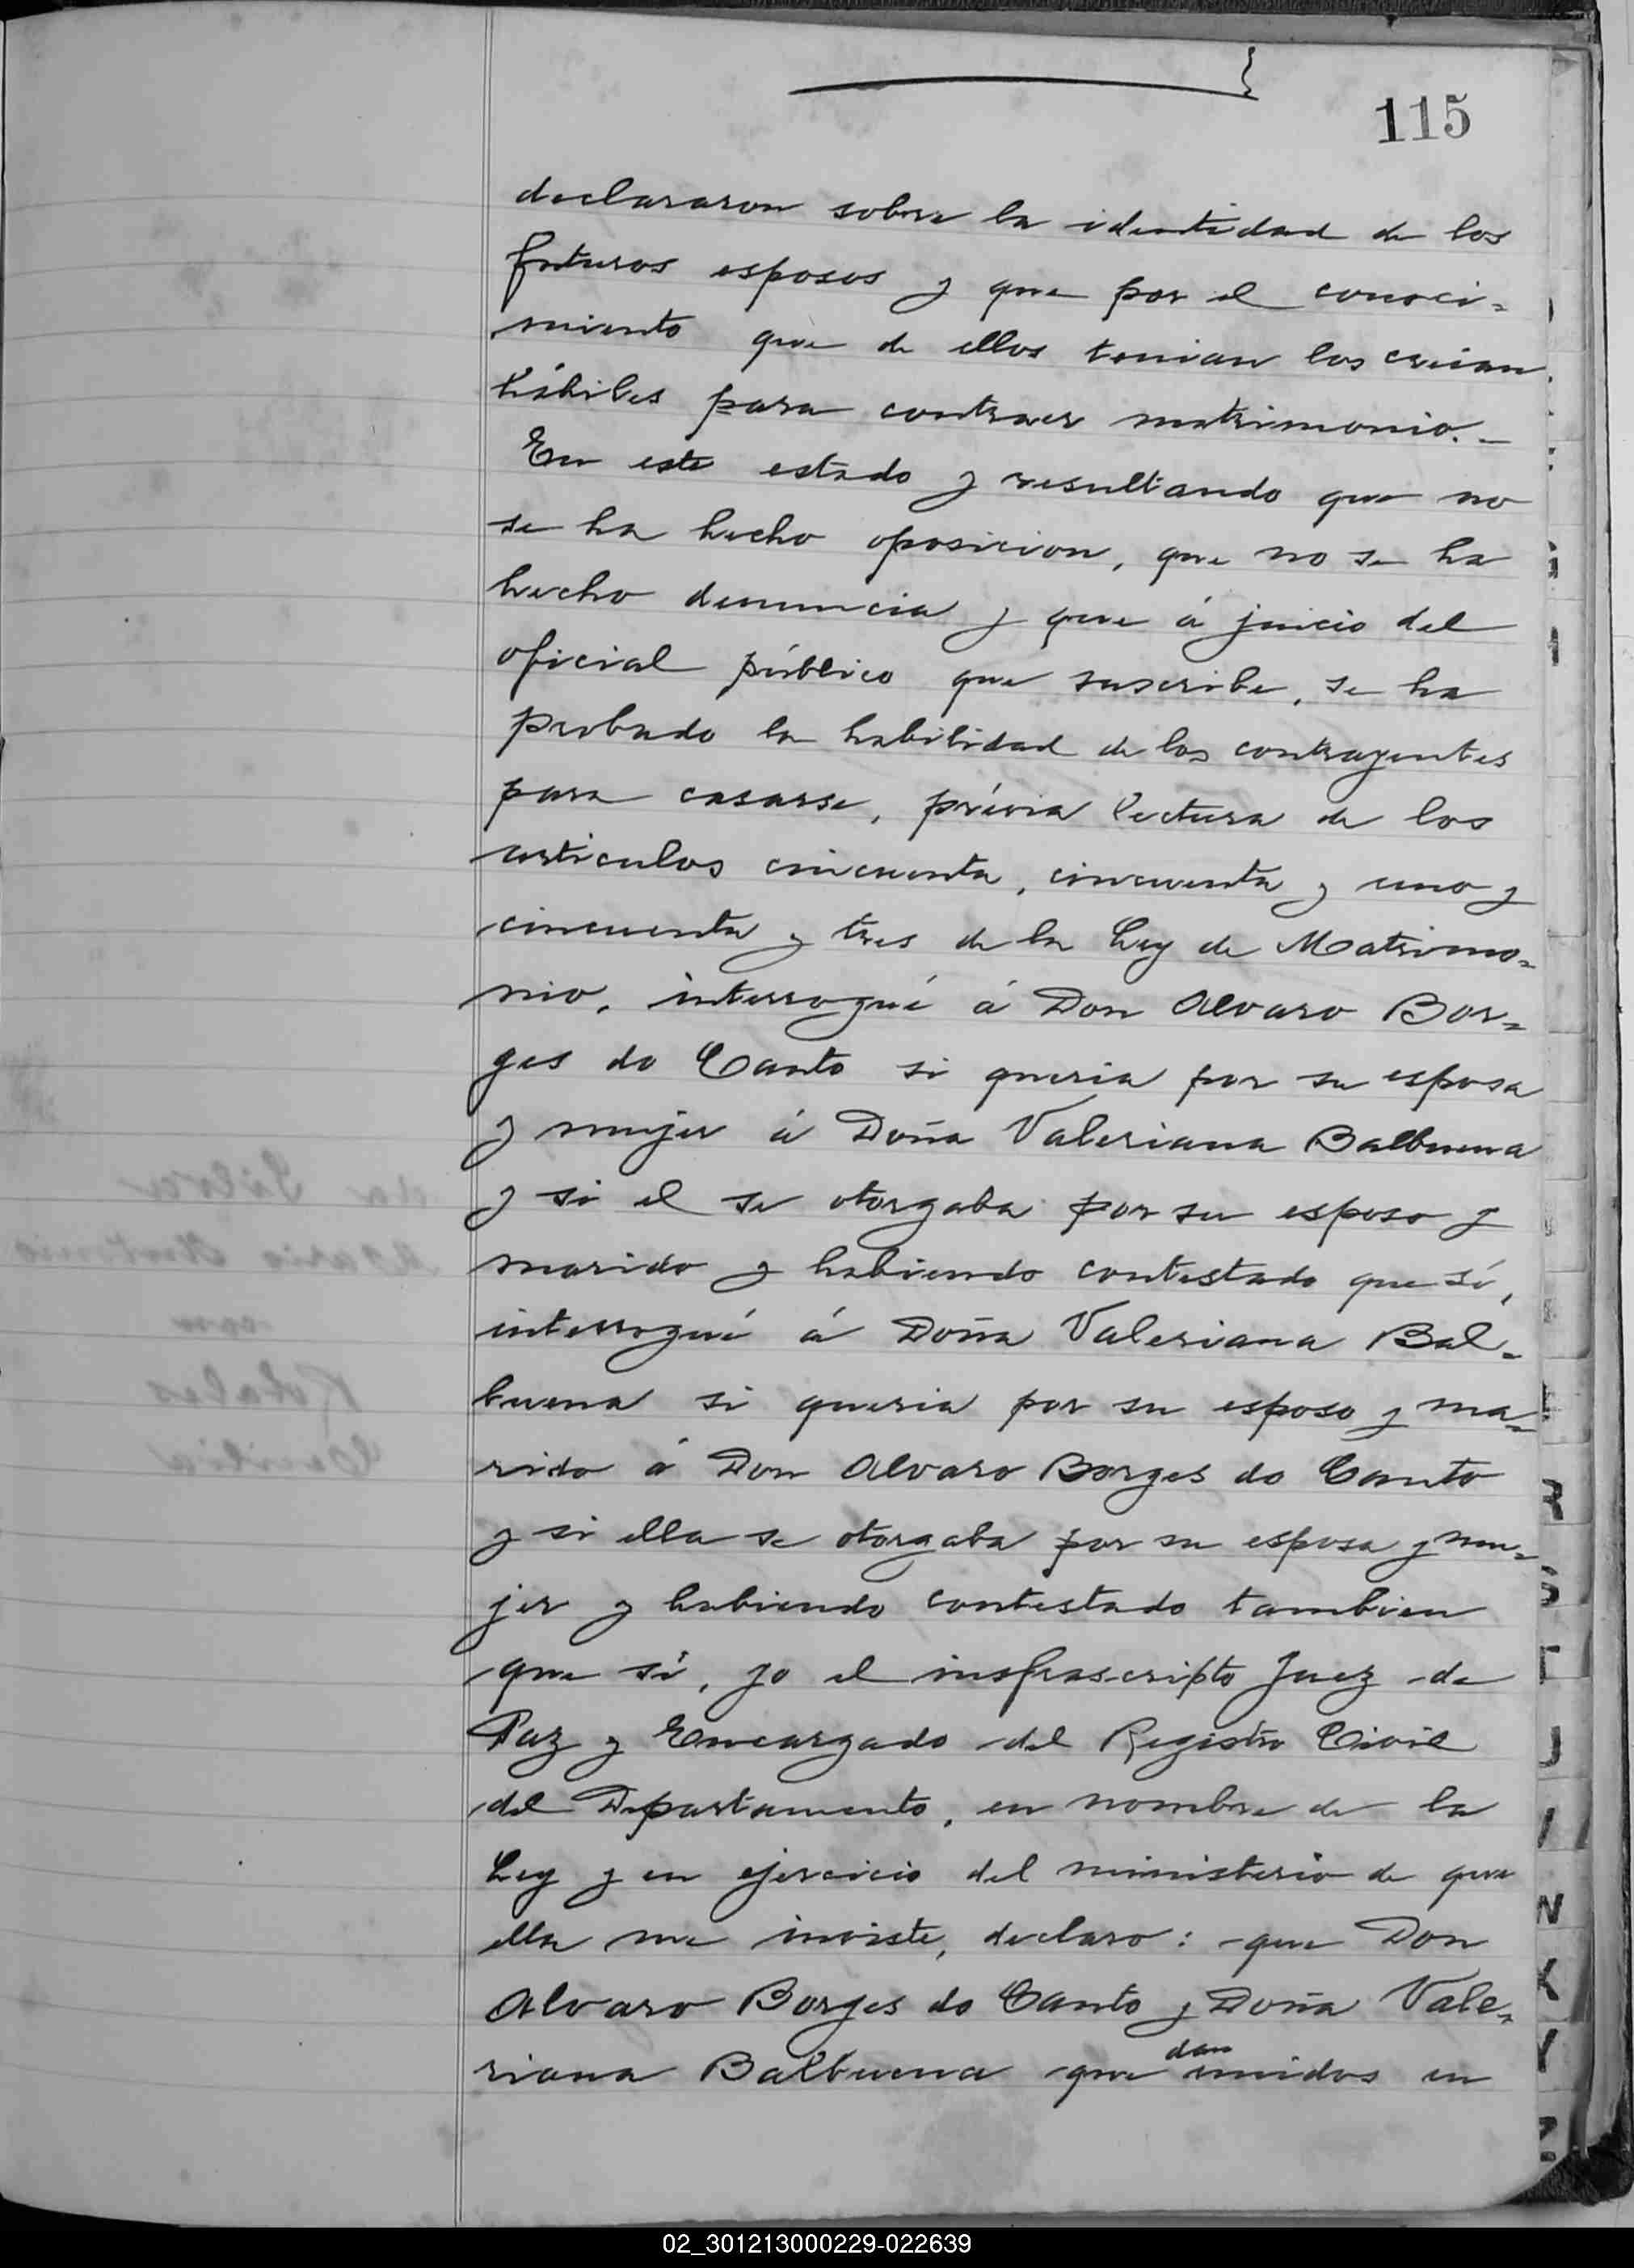 115
declararon sobre la identidad de los
futuros esposos y que por el conoci=
miento que de ellos tenian los creian
hábiles para contraer matrimonio.-
En este estado y resultando que no
se ha hecho oposicion, que no se ha
hecho denuncia y que á juicio del
oficial público que suscribe, se ha
probado la habilidad de los contrayentes
para casarse, prévia lectura de los
articulos cincuenta, cincuenta y uno y
cincuenta y tres de la Ley de Matrimo=
nio, interrogué á Don Alvaro Bor=
ges do Canto si queria por su esposa
y mujer á Doña Valeriana Balbuena
y si el se otorgaba por su esposo y
marido y habiendo contestado que sí,
interrogué á Doña Valeriana Bal=
buena si queria por su esposo y ma=
rido á Don Alvaro Borges do Canto
y si ella se otorgaba por su esposa y mu=
jer y habiendo contestado tambien
que sí, yo el insfrascripto Juez de
Paz y Encargado del Registro Civil
del Departamento, en nombre de la
Ley y en ejercicio del ministerio de que
ella me inviste, declaro: que Don
Alvaro Borges do Canto y Doña Vale=
dan
riana Balbuena que unidos en
R
S
T
U
V
N
K
Y
Z
02_301213000229-022639